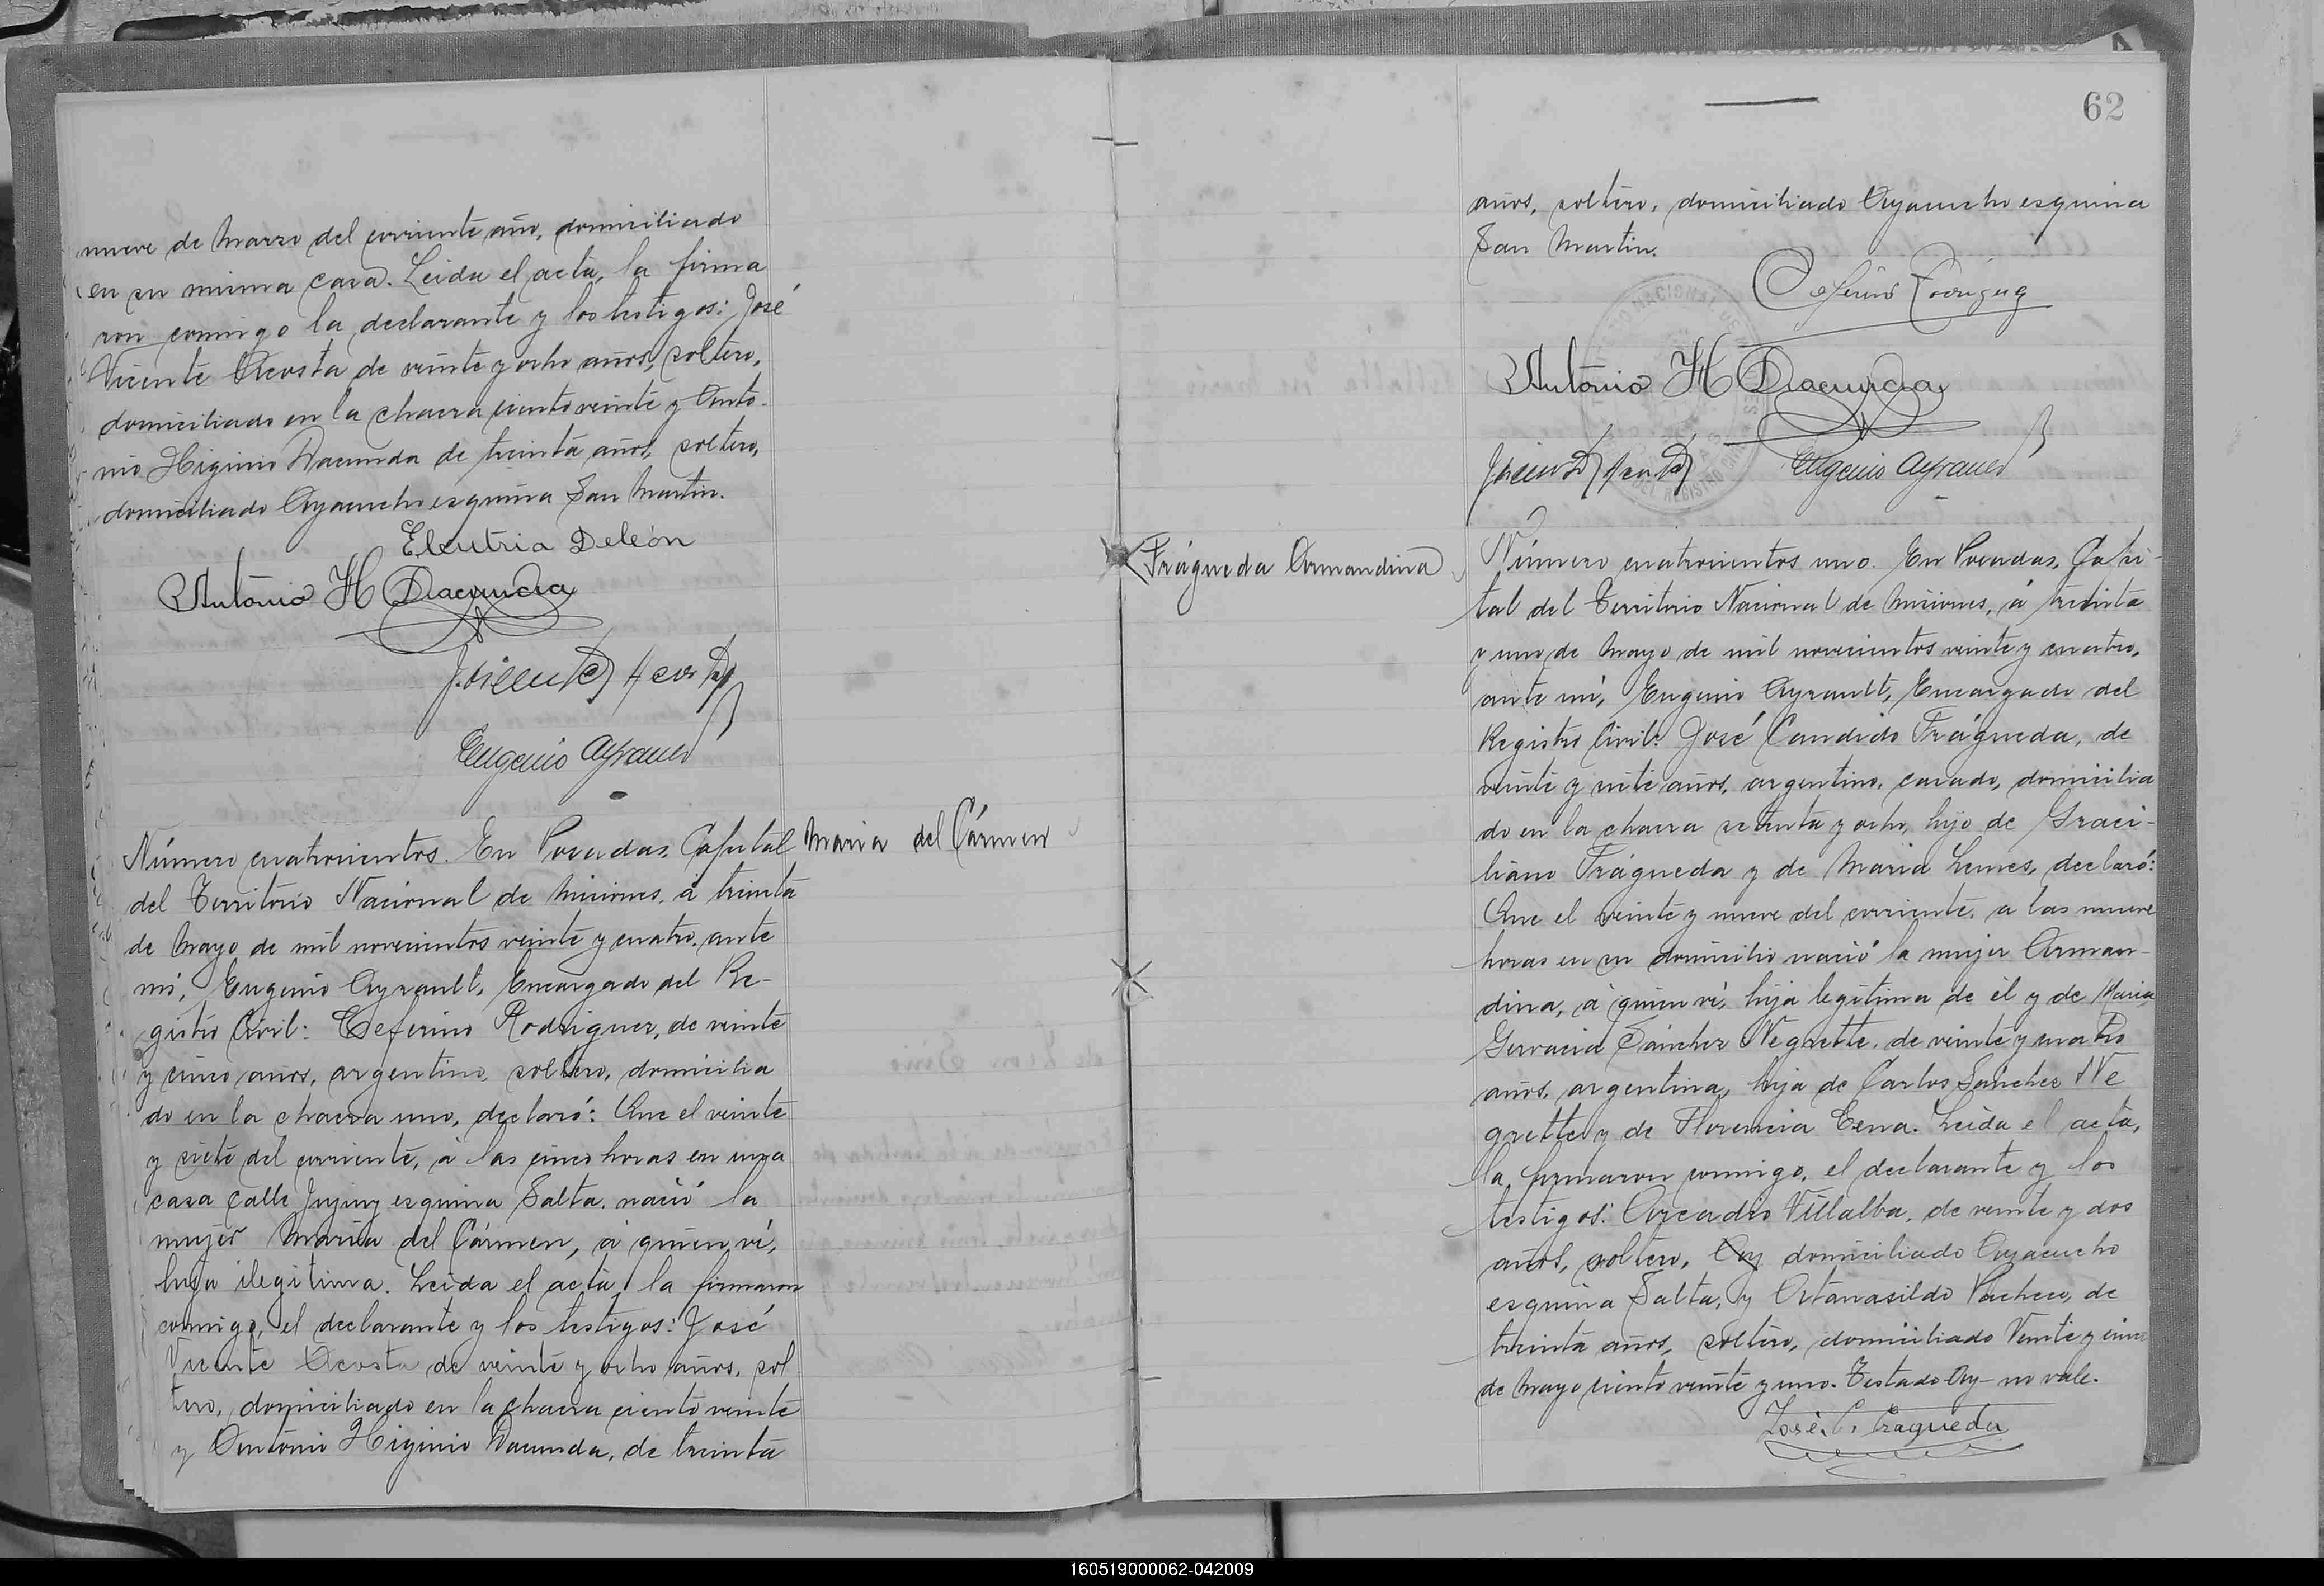 nueve de Marzo del corriente año, domiciliado
en su misma casa. Leida el acta, la firma
ron conmigo la declarante y los testigos: José
Vicente Acosta de veinte y ocho años, soltero,
domiciliado en la chacra ciento veinte y Anto-
nio Higinio Dacunda de treinta años, soltero,
domiciliado Ayacucho esquina San Martin.
Eleutria Deleón
Antonio H Dacunda
J. Vicente Acosta
Eugenio Ayrault
Número cuatrocientos. En Posadas, Capital
Maria del Cármen
del Territorio Nacional de Misiones, á treinta
de Mayo de mil novecientos veinte y cuatro, ante
mí, Eugenio Ayrault, Encargado del Re-
gistro Civil: Ceferino Rodriguez, de veinte
y cinco años, argentino, soltero, domicilia
do en la chacra uno, declaró: Que el veinte
y siete del corriente, á las cinco horas en una
casa calle Jujuy esquina Salta, nació la
mujer Maria del Cármen, á quien ví,
hija ilegitima. Leida el acta, la firmaron
conmigo, el declarante y los testigos: José
Vicente Acosta de veinte y ocho años, sol
tero, domiciliado en la chacra ciento veinte
y Antonio Higinio Dacunda, de treinta
62
años, soltero, domiciliado Ayacucho esquina
San Martin.
Ceferino Rodriguez
Antonio H Dacunda
J. Vicente Acosta Eugenio Ayrault
Frágueda Armandina
Número cuatrocientos uno. En Posadas, Capi-
tal del Territorio Nacional de Misiones, á treinta
y uno de Mayo de mil novecientos veinte y cuatro,
ante mí, Eugenio Ayrault, Encargado del
Registro Civil: José Candido Frágueda, de
veinte y siete años, argentino, casado, domicilia
do en la chacra setenta y ocho, hijo de Graci-
liano Frágueda y de Maria Lemes, declaró:
Que el veinte y nueve del corriente, a las nueve
horas en su domicilio nació la mujer Arman-
dina, á quien ví, hija legítima de él y de Maria
Gervacia Sánchez Negrette, de veinte y cuatro
años, argentina, hija de Carlos Sánchez Ne
grette y de Florencia Cena. Leida el acta,
la firmaron conmigo, el declarante y los
testigos: Arcadio Villalba, de veinte y dos
años, soltero, Ay domiciliado Ayacucho
esquina Salta, y Atanasildo Pacheco, de
treinta años, soltero, domiciliado Veinte y cinco
de Mayo ciento veinte y uno. Testado Ay- no vale.
José C. Fragueda
160519000062-042009